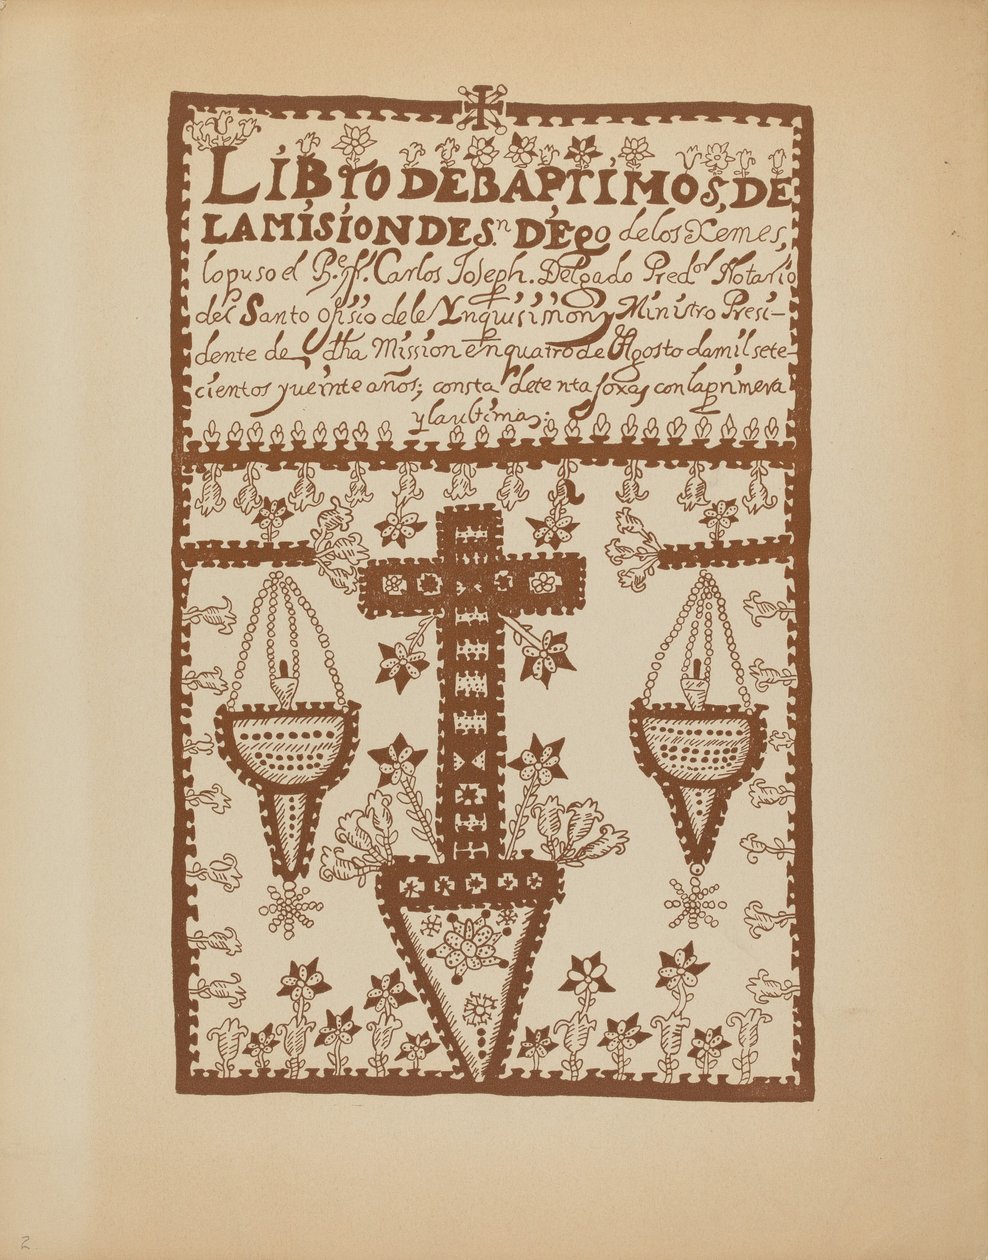 LiBro DE BAPTiMOS, DE
LA MiSiON DE S.n DiEgo de los Xemes,
lo puso el R.e P.e fr. Carlos Joseph. Delgado Pred.or Notario
del Santo ofisio dela Ynquisision, y Ministro Presi-
dente de dha Mission en quatro de Agosto da mil sete-
cientos y ueinte años; consta de tenta foxas con la primera
y la ultima;
2